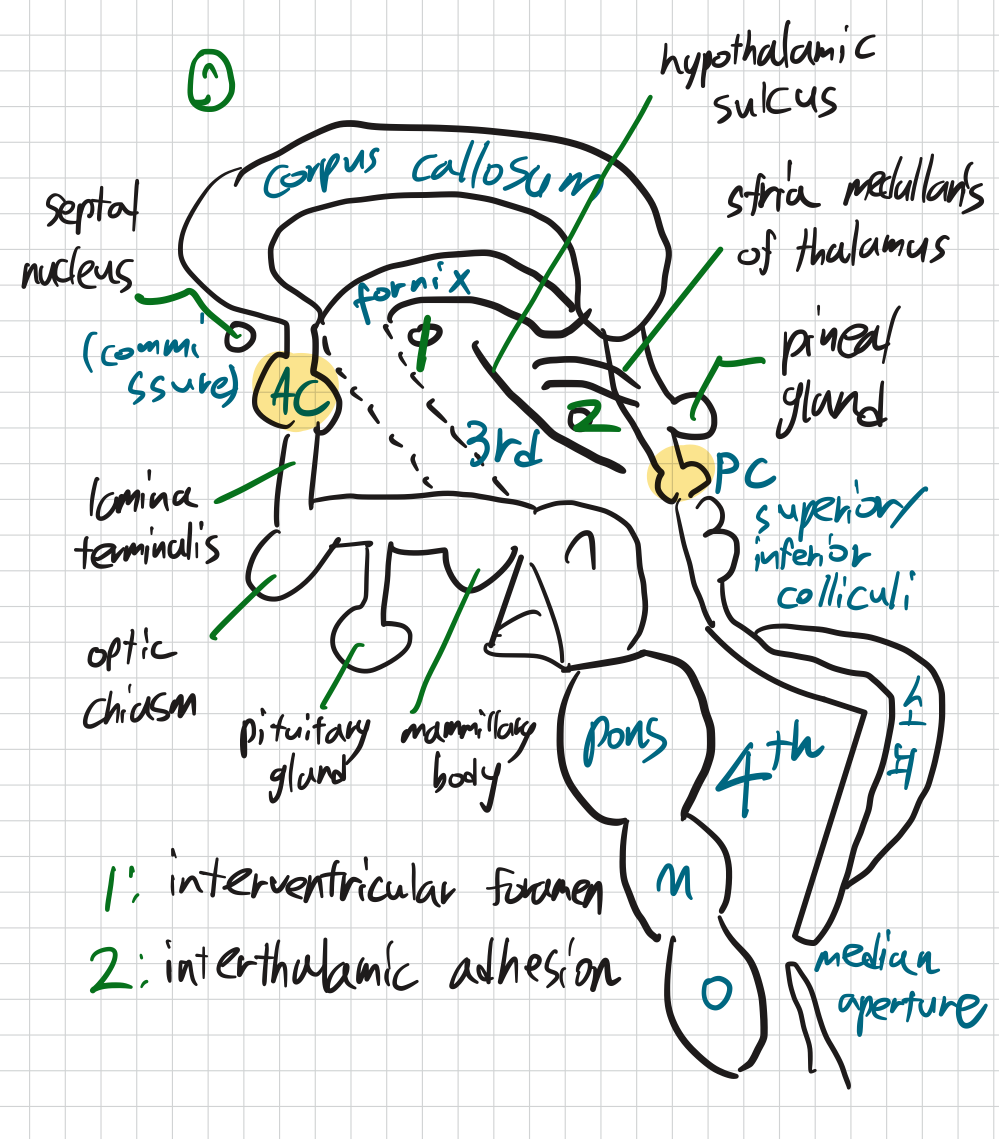 hypothalamic
sulcus
corpus callosum
septal
nucleus
stria medullaris
of thalamus
fornix
1
(commi
ssure)
pineal
gland
AC
2
3rd
PC
lamina
terminalis
superior/
inferior
colliculi
optic
chiasm
pituitary
gland
mammillary
body
pons
4th
1: interventricular foramen
M
2: interthalamic adhesion
O
median
aperture